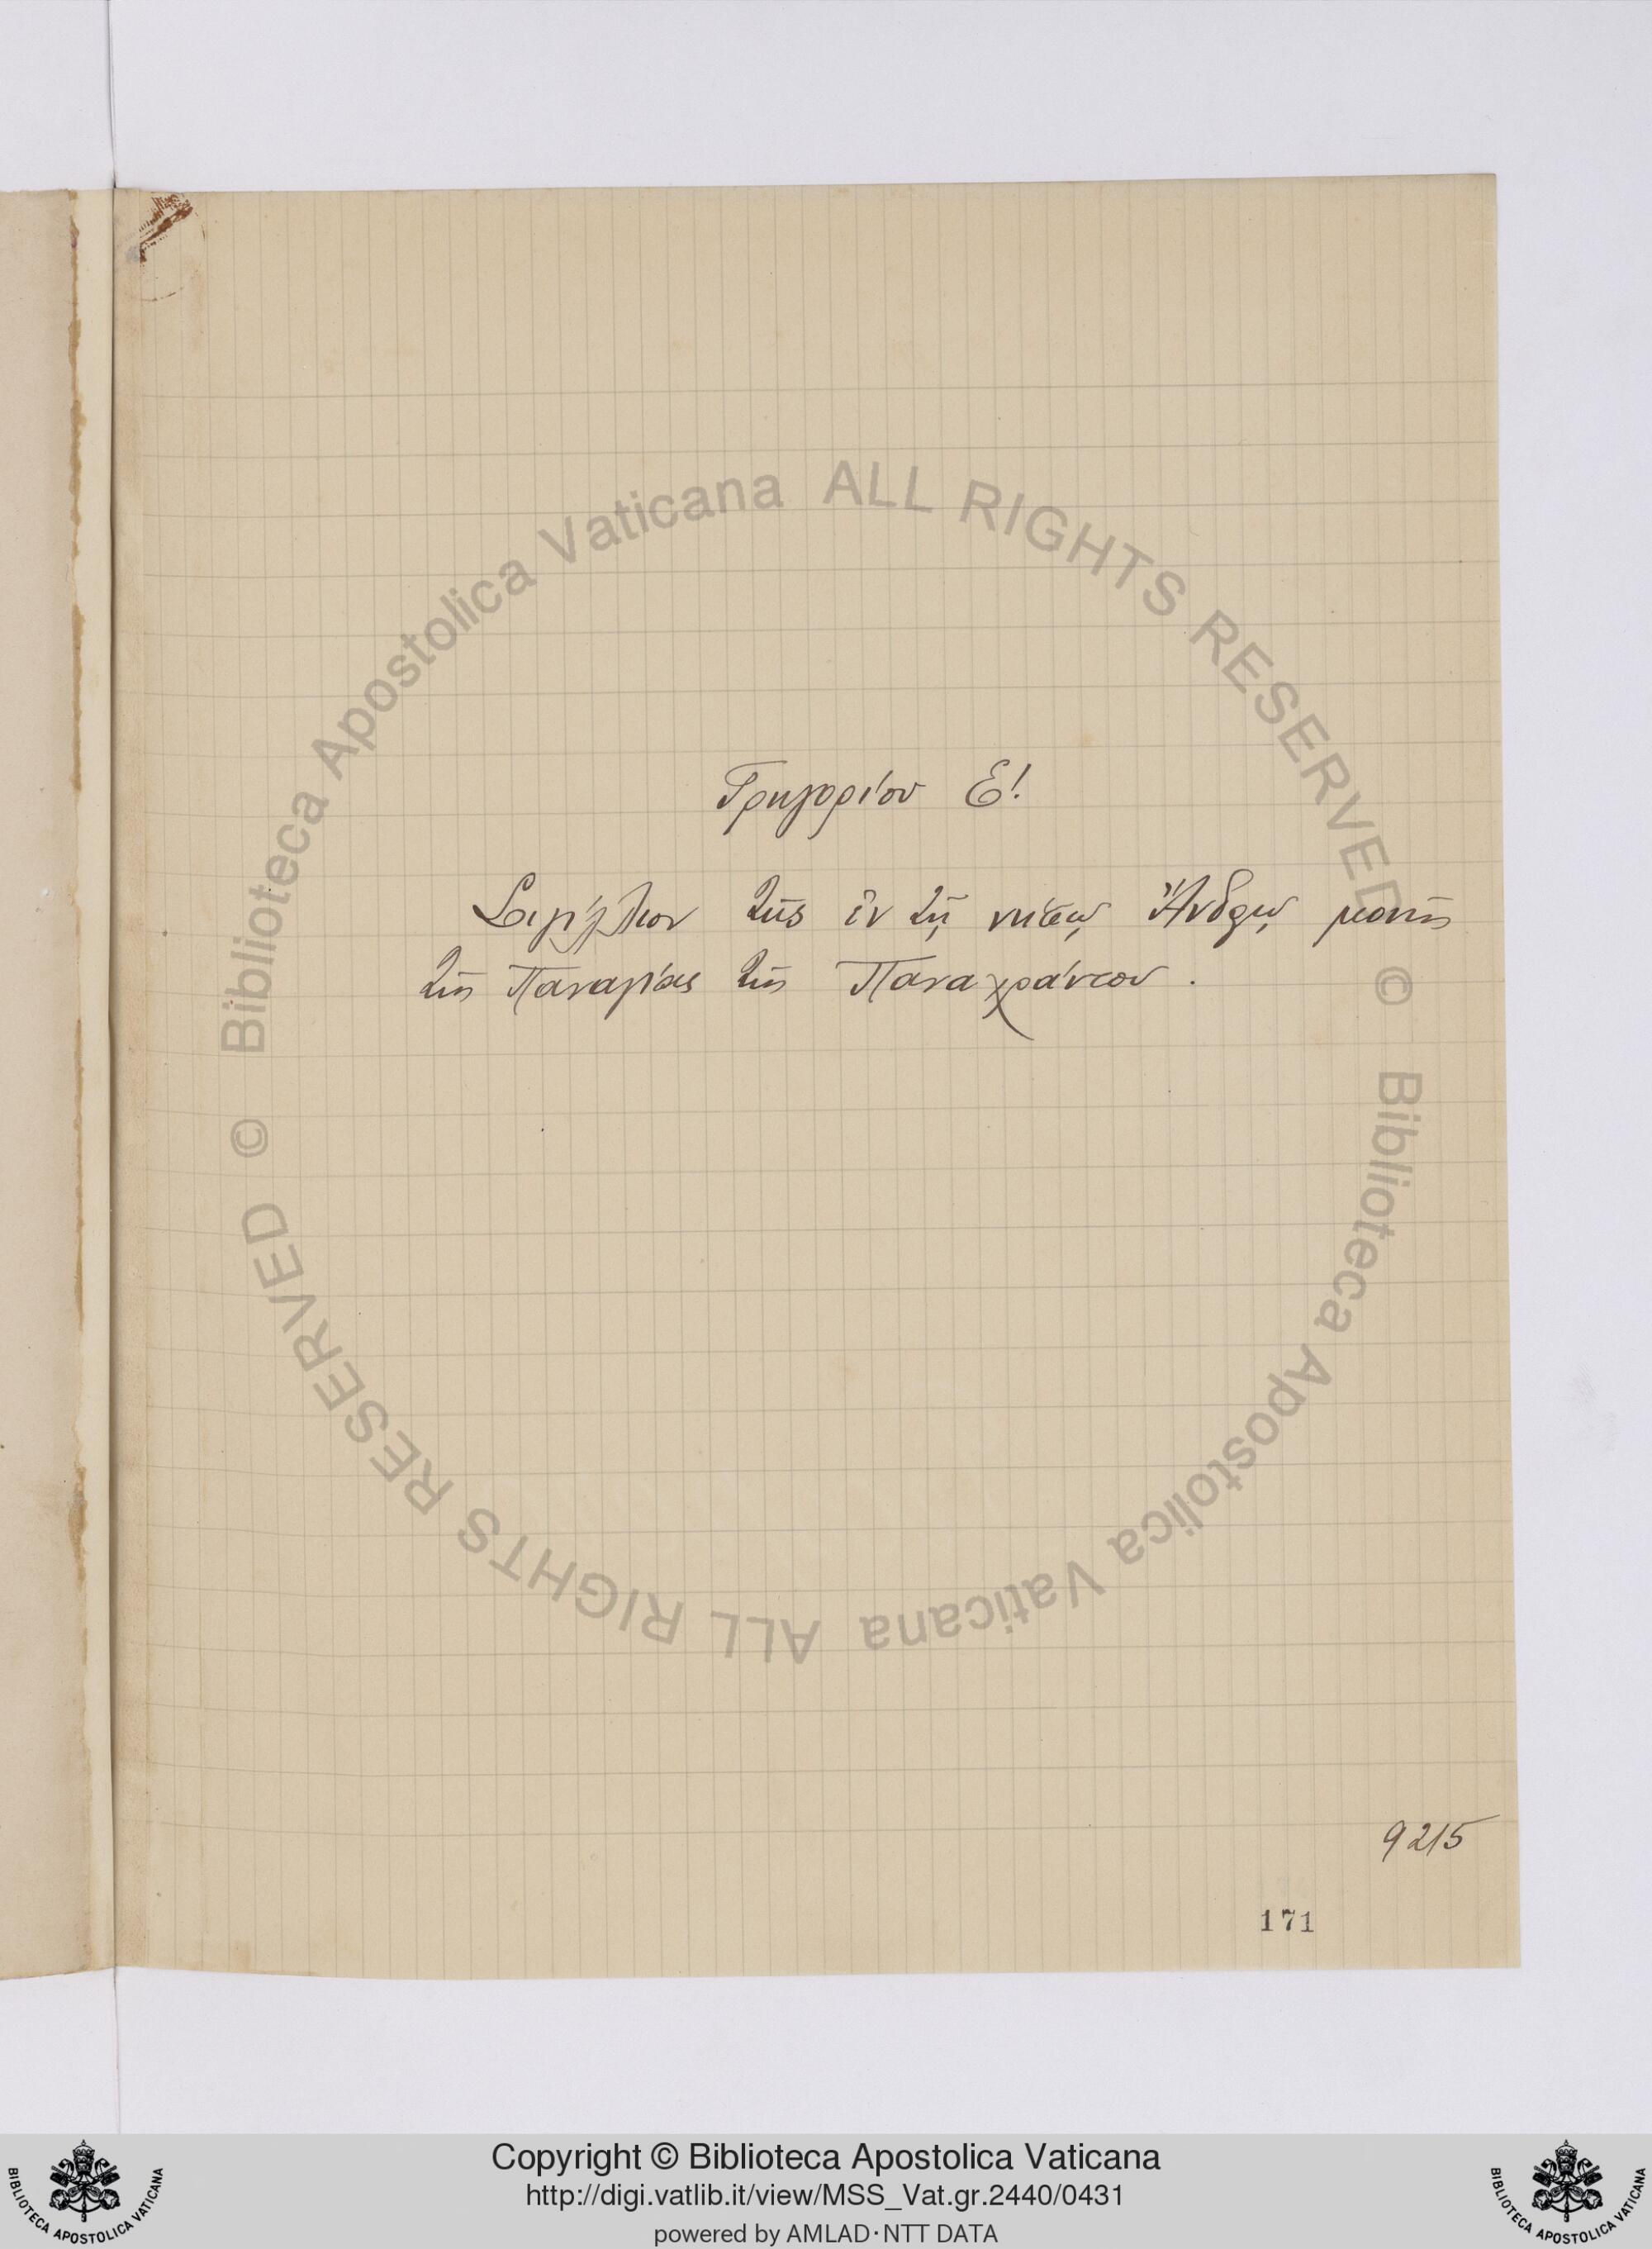 Γρηγορίου Ε΄.
Σιγίλλιον τῆς ἐν τῇ νήσῳ Ἄνδρῳ μονῆς
τῆς Παναγίας τῆς Παναχράντου.
9215
171
© Biblioteca Apostolica Vaticana ALL RIGHTS RESERVED
© Biblioteca Apostolica Vaticana ALL RIGHTS RESERVED
Copyright © Biblioteca Apostolica Vaticana
http://digi.vatlib.it/view/MSS_Vat.gr.2440/0431
powered by AMLAD·NTT DATA
BIBLIOTECA APOSTOLICA VATICANA
BIBLIOTECA APOSTOLICA VATICANA